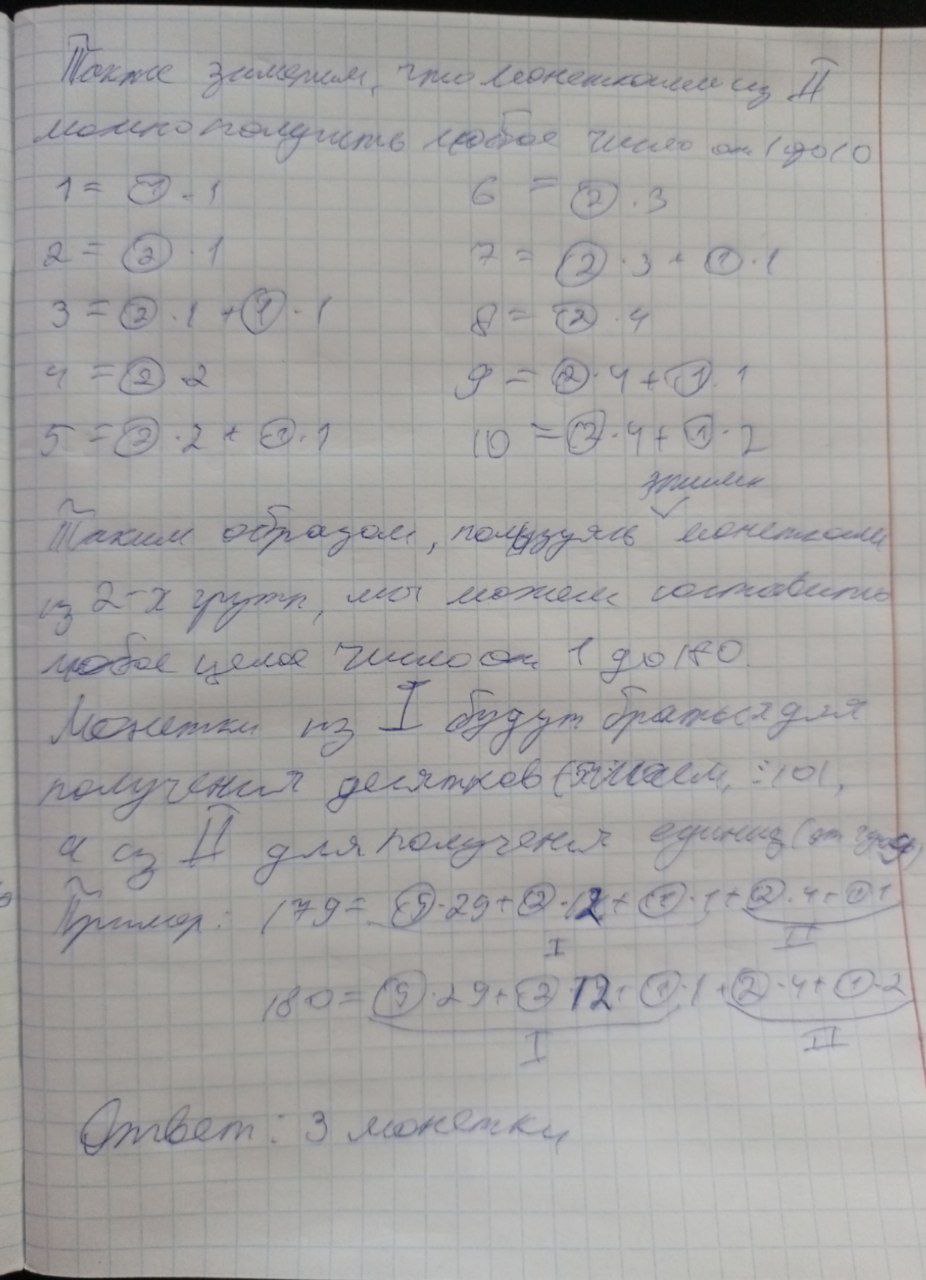 Также заметим, что монетками из II
можно получить любое число от 1 до 10
1 = ① · 1
2 = ② · 1
3 = ② · 1 + ① · 1
4 = ② · 2
5 = ② · 2 + ① · 1
6 = ② · 3
7 = ② · 3 + ① · 1
8 = ② · 4
9 = ② · 4 + ① · 1
10 = ② · 4 + ① · 2
этими
Таким образом, пользуясь монетками
из 2-х групп, мы можем составить
любое целое число от 1 до 180.
Монетки из I будут браться для
получения десятков
а из II для получения единиц
Пример: 179 = ⑤ · 29 + ② · 12 + ① · 1 + ② · 4 + ① · 1
I II
180 = ⑤ · 29 + ② · 12 + ① · 1 + ② · 4 + ① · 2
I II
Ответ: 3 монетки